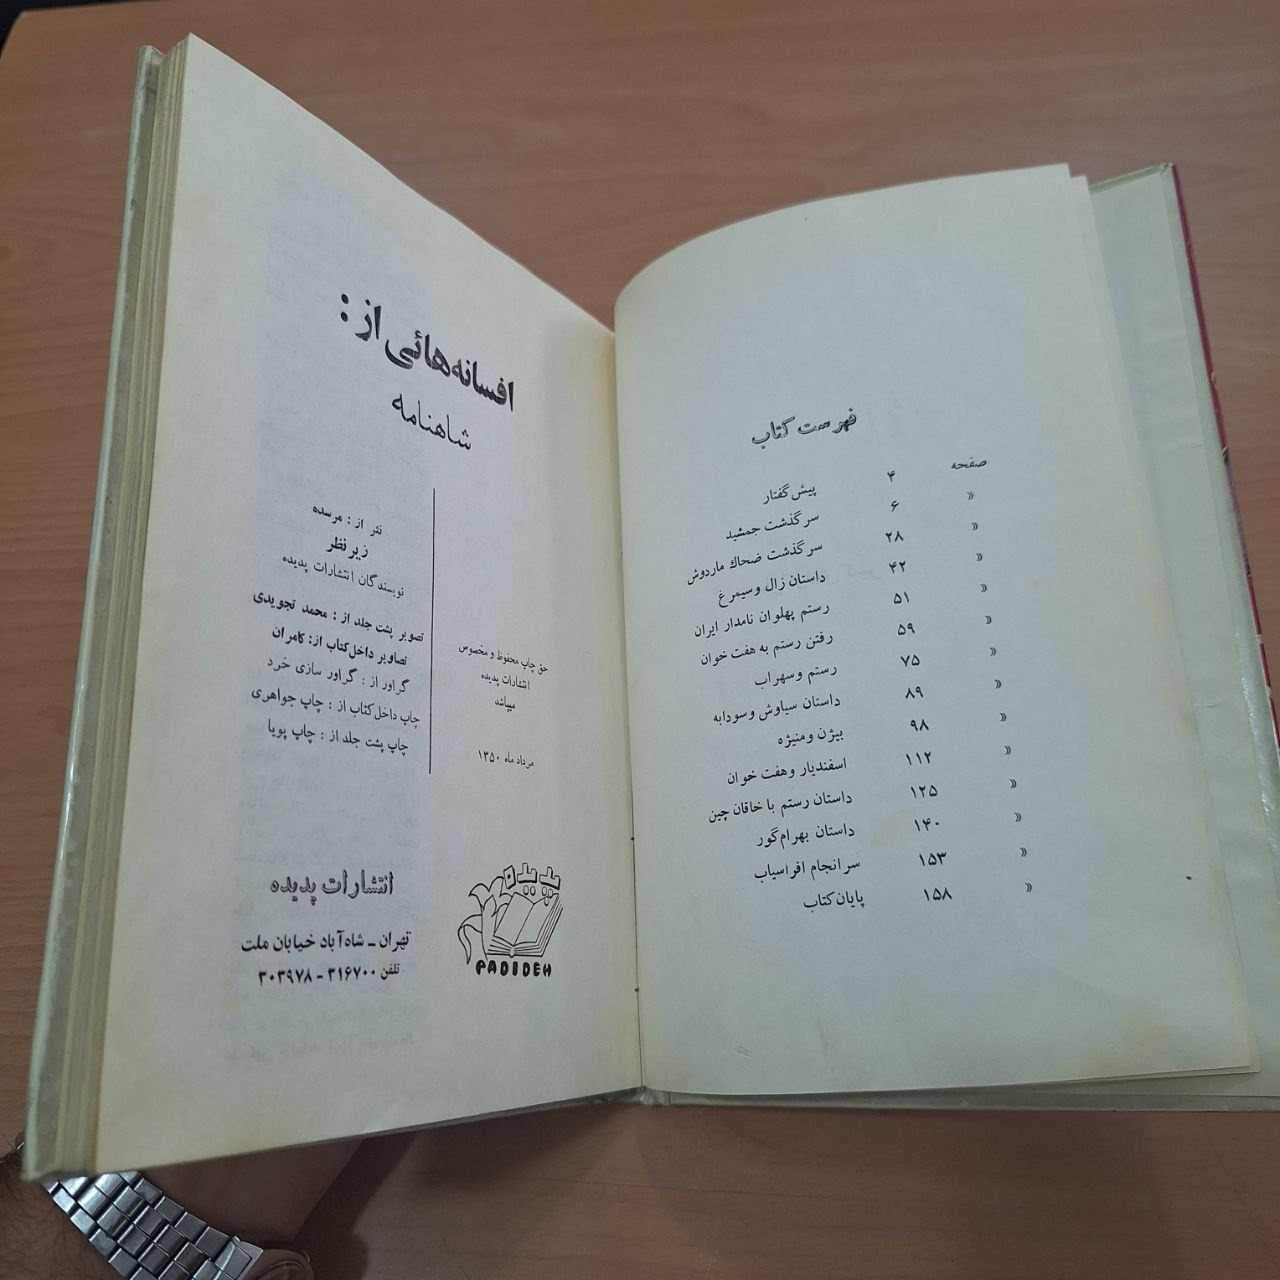 فهرست کتاب
صفحه ۴ پیش گفتار
» ۶ سرگذشت جمشید
» ۲۸ سرگذشت ضحاك ماردوش
» ۴۲ داستان زال وسیمرغ
» ۵۱ رستم پهلوان نامدار ایران
» ۵۹ رفتن رستم به هفت خوان
» ۷۵ رستم وسهراب
» ۸۹ داستان سیاوش وسودابه
» ۹۸ بیژن ومنیژه
» ۱۱۲ اسفندیار وهفت خوان
» ۱۲۵ داستان رستم با خاقان چین
» ۱۴۰ داستان بهرام‌گور
» ۱۵۳ سرانجام افراسیاب
» ۱۵۸ پایان‌کتاب
افسانه‌هائی از :
شاهنامه
نثر از : مرسده
زیر نظر
نویسندگان انتشارات پدیده
تصویر پشت جلد از : محمد تجویدی
تصاویر داخل کتاب از: کامران
گراور از : گراور سازی خرد
چاپ داخل کتاب از : چاپ جواهری
چاپ پشت جلد از : چاپ پویا
حق چاپ محفوظ و مخصوص
انتشارات پدیده
میباشد
مرداد ماه ۱۳۵۰
پدیده
PADIDEH
انتشارات پدیده
تهران - شاه‌آباد خیابان ملت
تلفن ۳۱۶۷۰۰ - ۳۰۳۹۷۸